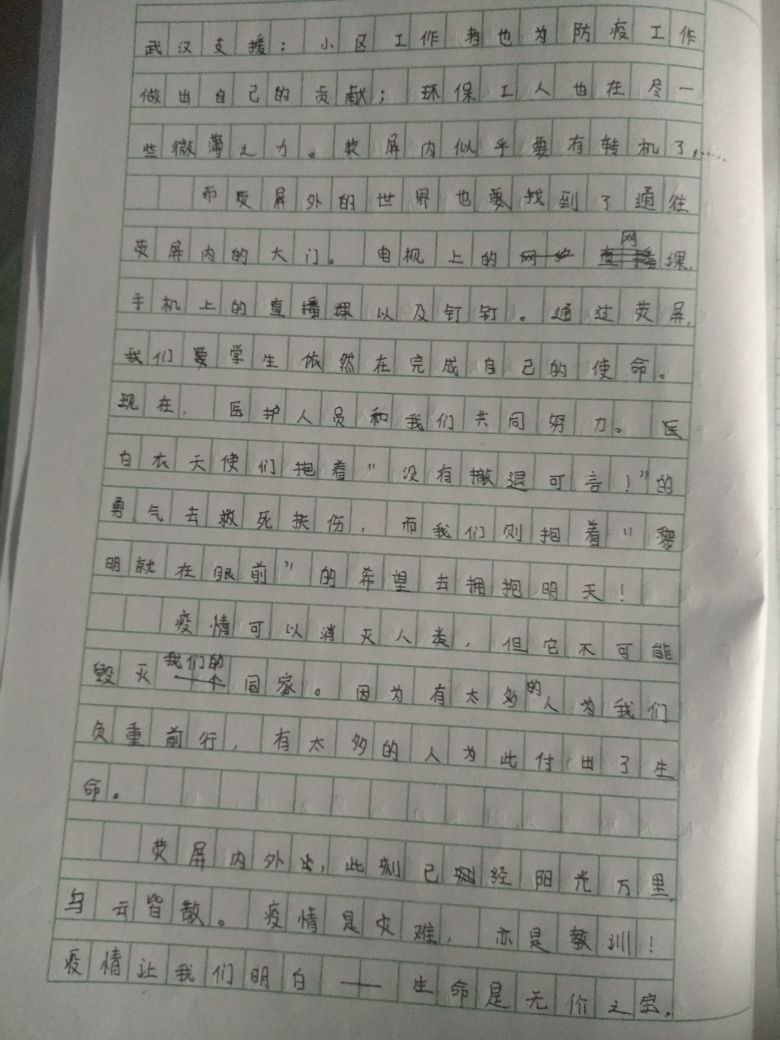 武汉支援；小区工作者也为防疫工作
做出自己的贡献；环保工人也在尽一
些微薄之力。荧屏内似乎要有转机了……
而荧屏外的世界也要找到了通往
荧屏内的大门。电机上的网课，
手机上的直播课以及钉钉。通过荧屏，
我们要学生依然在完成自己的使命。
现在，医护人员和我们共同努力。医
白衣天使们抱着“没有撤退可言！”的
勇气去救死扶伤，而我们则抱着“黎
明就在眼前”的希望去拥抱明天！
疫情可以消灭人类，但它不可能
毁灭我们的国家。因为有太多的人为我们
负重前行，有太多的人为此付出了生
命。
荧屏内外，此刻已经阳光万里，
乌云皆散。疫情是灾难，亦是教训！
疫情让我们明白——生命是无价之宝，